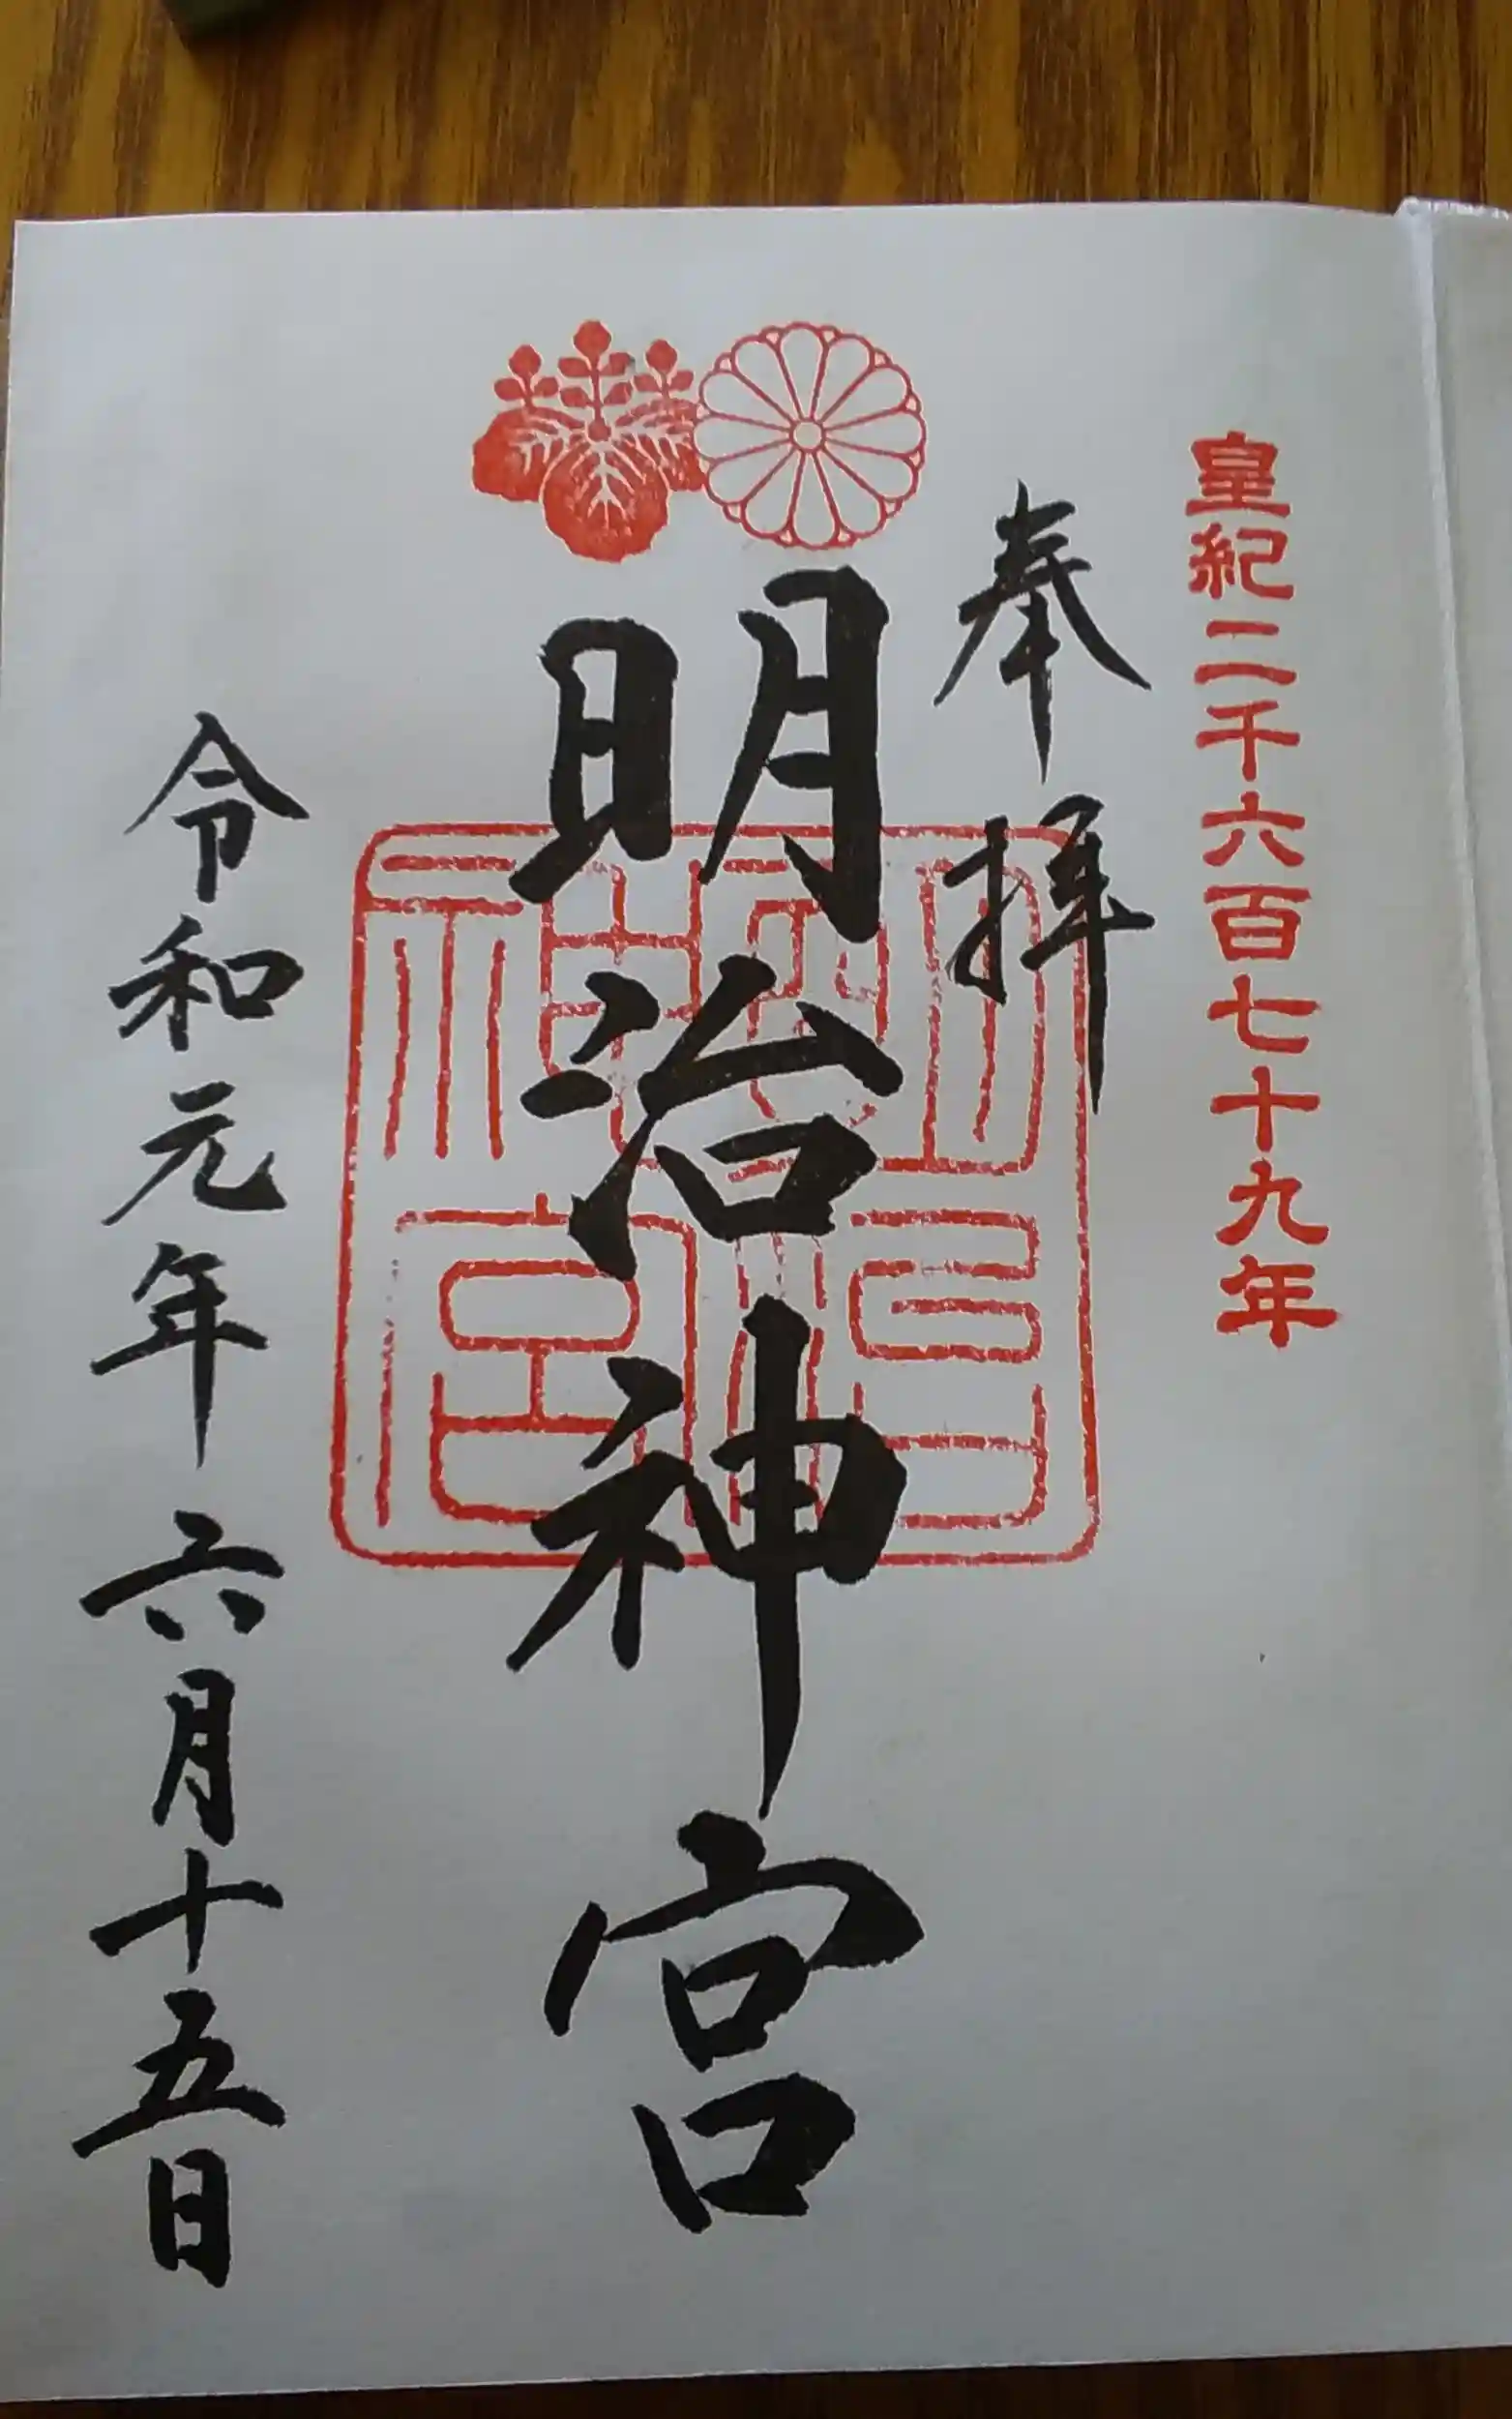 皇紀二千六百七十九年
奉拝
明治神宮
令和元年六月十五日